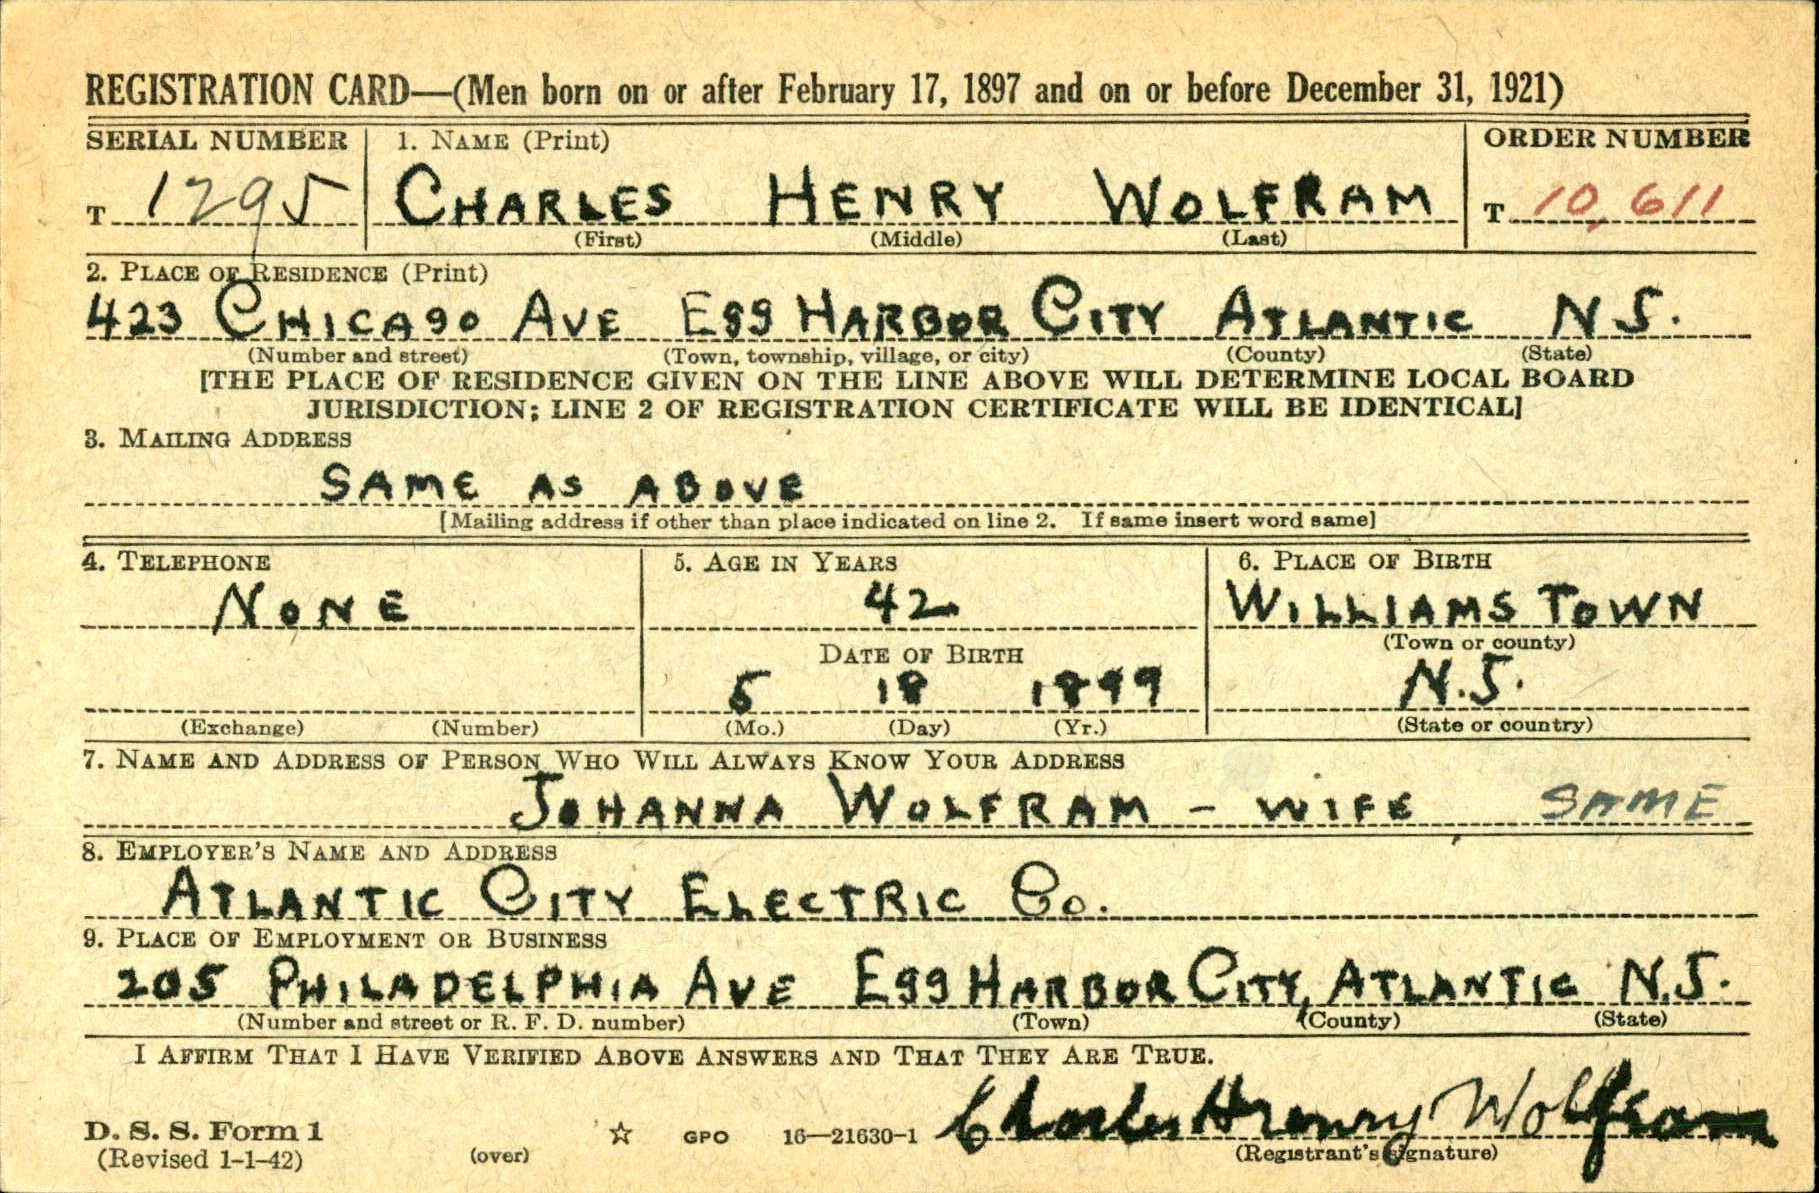 REGISTRATION CARD—(Men born on or after February 17, 1897 and on or before December 31, 1921)
SERIAL NUMBER 1. NAME (Print) ORDER NUMBER
T 1295 CHARLES HENRY WOLFRAM T 10,611
(First) (Middle) (Last)
2. PLACE OF RESIDENCE (Print)
423 CHICAGO AVE EGG HARBOR CITY ATLANTIC N J.
(Number and street) (Town, township, village, or city) (County) (State)
[THE PLACE OF RESIDENCE GIVEN ON THE LINE ABOVE WILL DETERMINE LOCAL BOARD
JURISDICTION; LINE 2 OF REGISTRATION CERTIFICATE WILL BE IDENTICAL]
3. MAILING ADDRESS
SAME AS ABOVE
[Mailing address if other than place indicated on line 2. If same insert word same]
4. TELEPHONE 5. AGE IN YEARS 6. PLACE OF BIRTH
NONE 42 WILLIAMS TOWN
DATE OF BIRTH (Town or county)
5 18 1899 N.J.
(Exchange) (Number) (Mo.) (Day) (Yr.) (State or country)
7. NAME AND ADDRESS OF PERSON WHO WILL ALWAYS KNOW YOUR ADDRESS
JOHANNA WOLFRAM - WIFE SAME
8. EMPLOYER'S NAME AND ADDRESS
ATLANTIC CITY ELECTRIC Co.
9. PLACE OF EMPLOYMENT OR BUSINESS
205 PHILADELPHIA AVE EGG HARBOR CITY, ATLANTIC N.J.
(Number and street or R. F. D. number) (Town) (County) (State)
I AFFIRM THAT I HAVE VERIFIED ABOVE ANSWERS AND THAT THEY ARE TRUE.
Charles Henry Wolfram
D. S. S. Form 1
(Revised 1-1-42) (over) ☆ GPO 16—21630-1 (Registrant's signature)